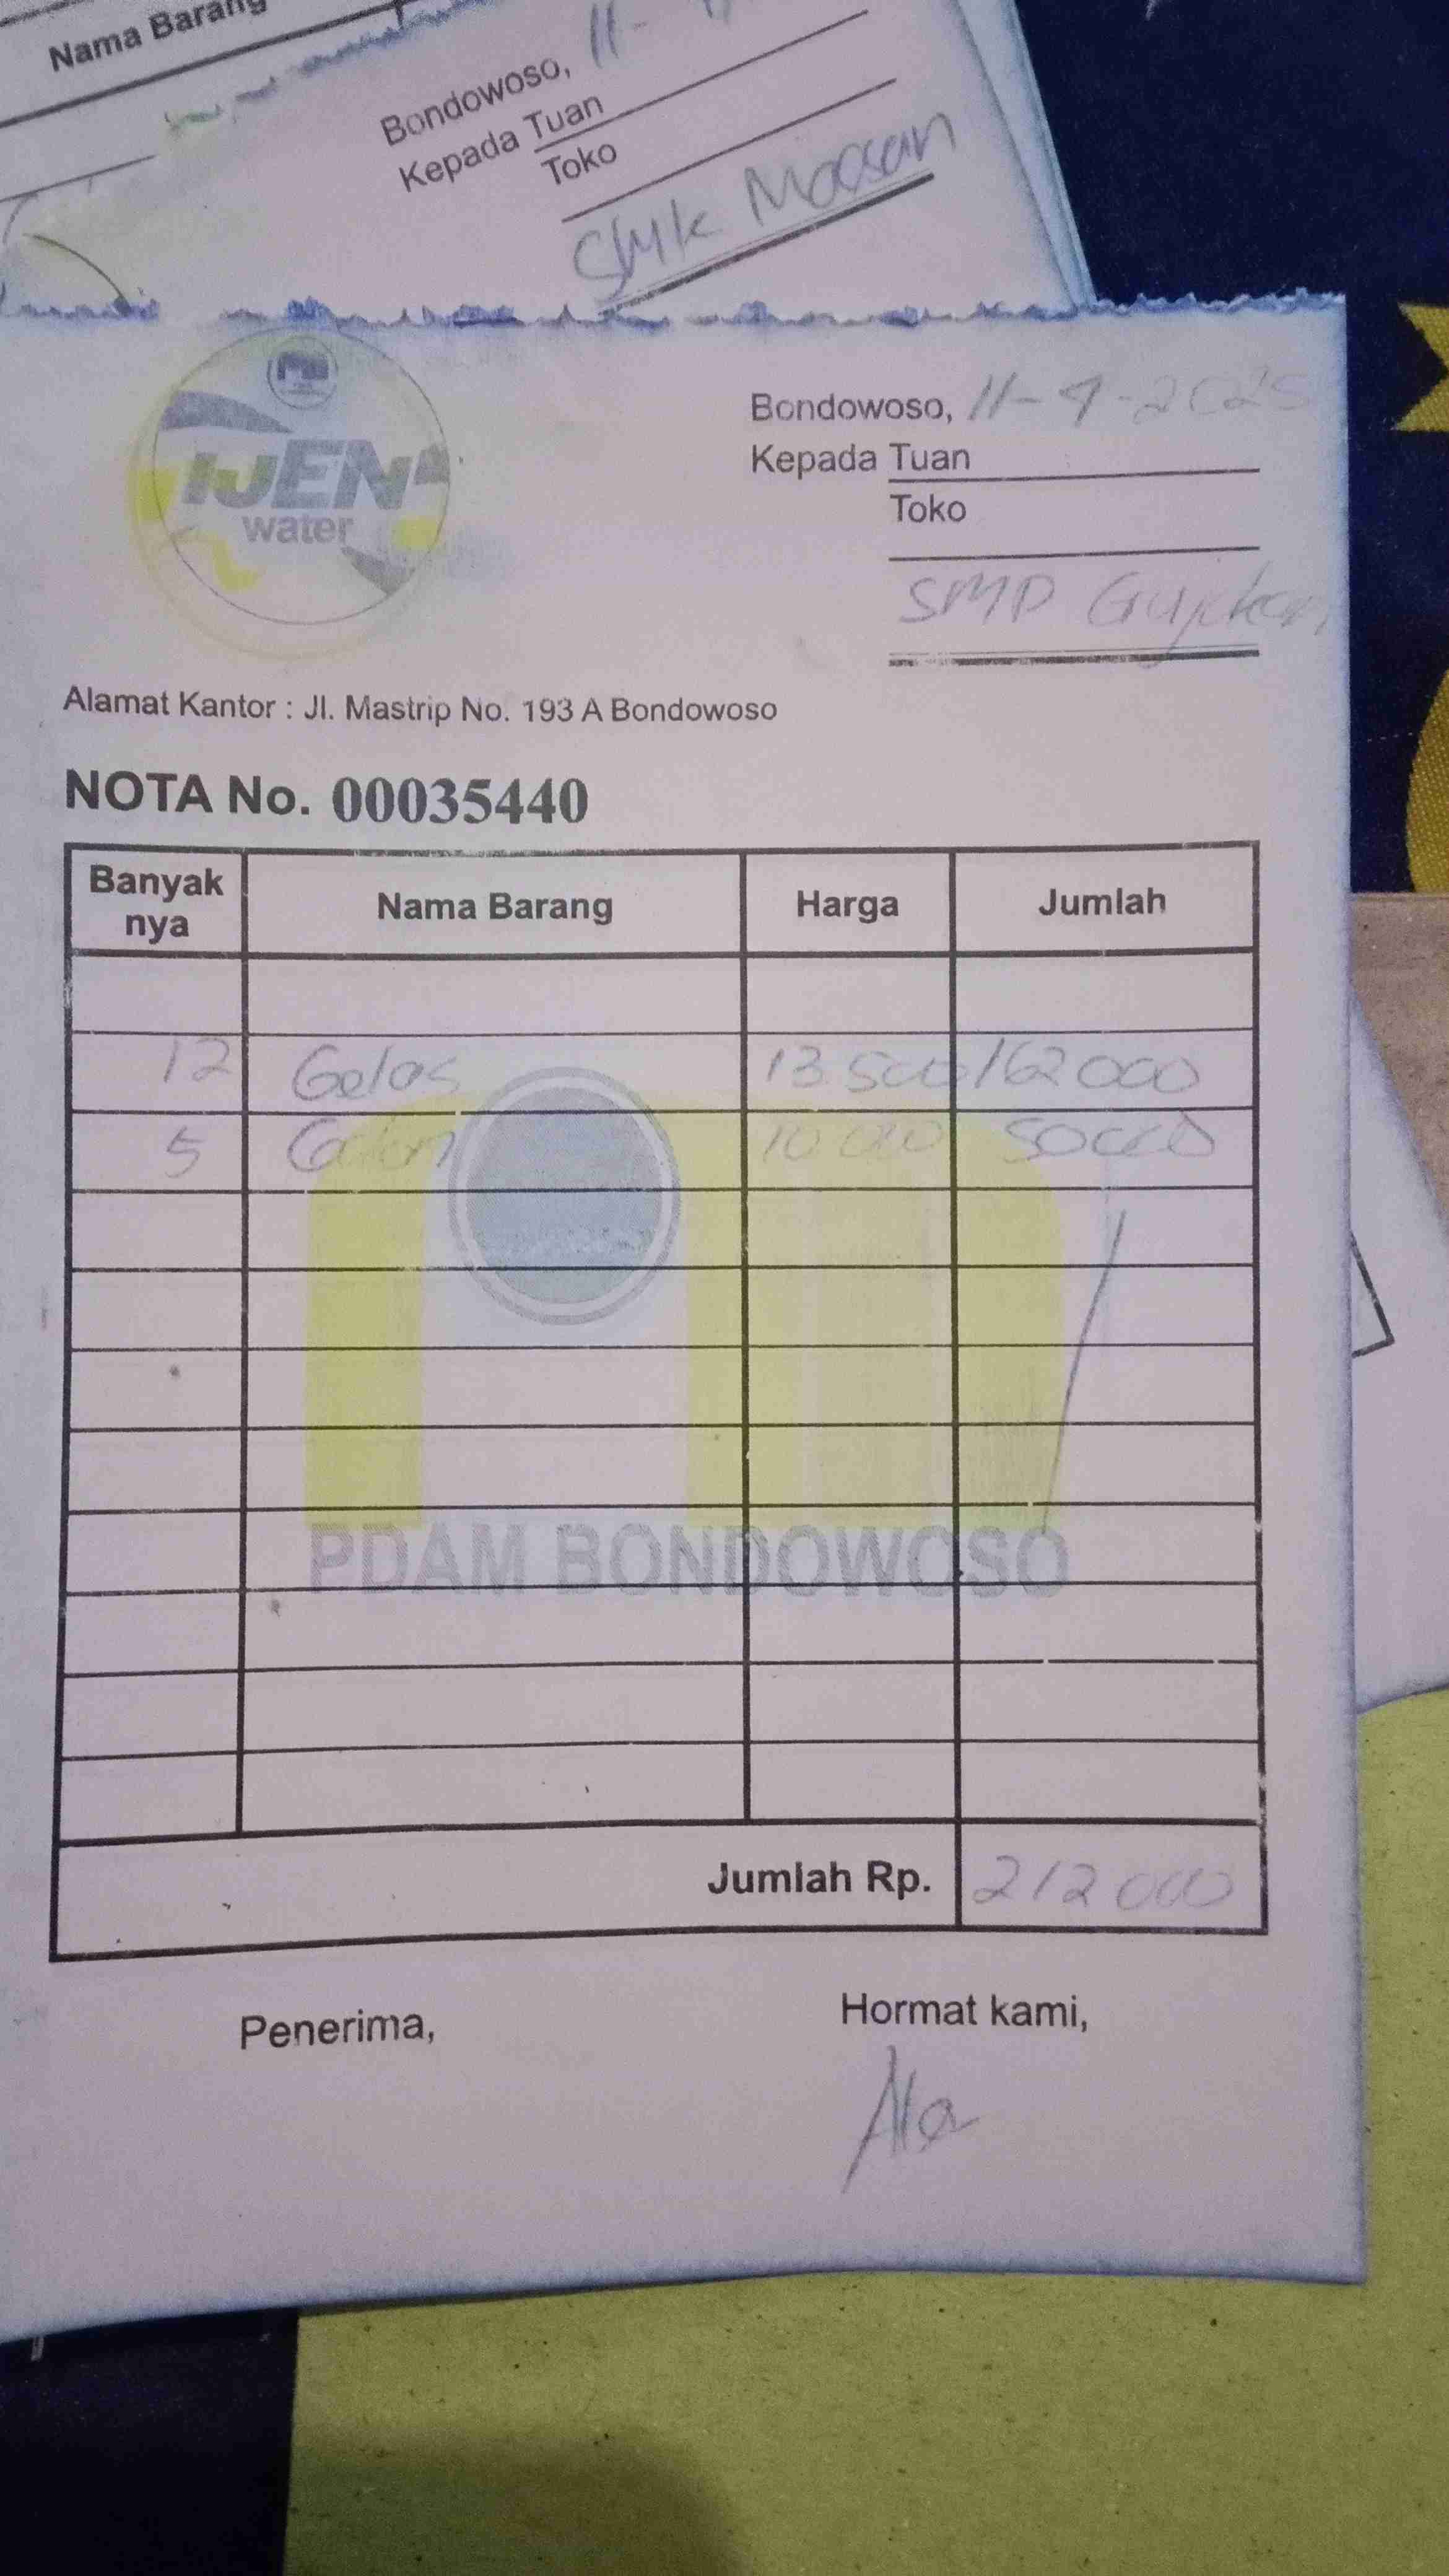 Nama Barang
Bondowoso, 11-
Kepada Tuan
Toko
IJEN
water
Bondowoso, 11-4-2025
Kepada Tuan
Toko
SMP
Alamat Kantor : Jl. Mastrip No. 193 A Bondowoso
NOTA No. 00035440
Banyak nya Nama Barang Harga Jumlah
12 Gelas 13.500 162 000
5 Galon 10.000 50000
PDAM BONDOWOSO
Jumlah Rp. 212 000
Penerima, Hormat kami,